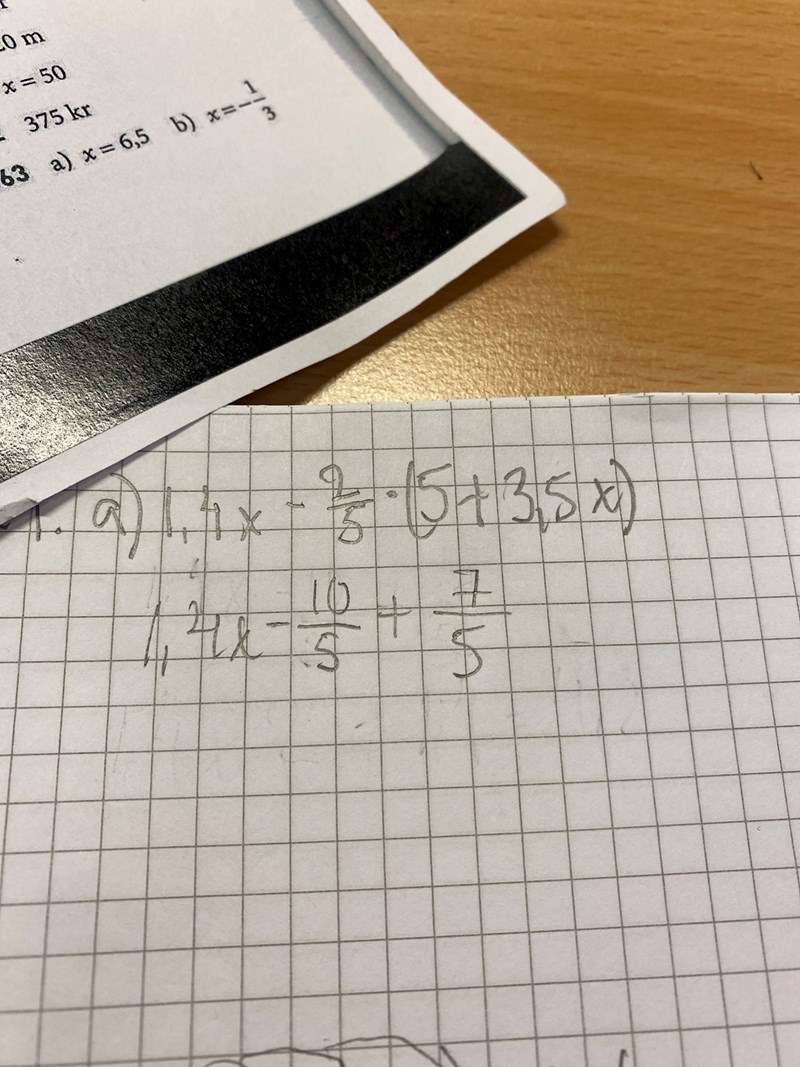 0 m
x = 50
375 kr
63 a) x = 6,5 b) x = -1/3
1. a) 1,4x - 2/5 · (5 + 3,5x)
1,4x - 10/5 + 7/5